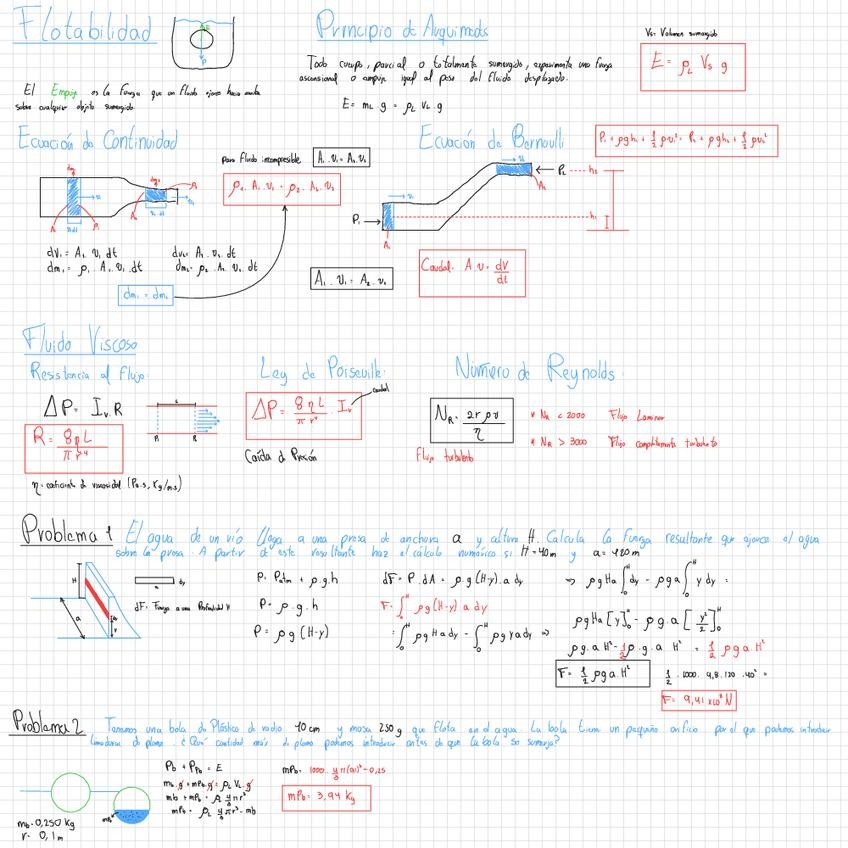 Flotabilidad
E
P
El Empuje es la fuerza que un fluido ejerce hacia arriba
sobre cualquier objeto sumergido.
Principio de Arquimedes
Todo cuerpo, parcial o totalmente sumergido, experimenta una fuerza
ascensional o empuje igual al peso del fluido desplazado.
E = m_L g = ρ_L V_L g
Vs: Volumen sumergido
E = ρ_L V_s g
Ecuación de Continuidad
para fluido incompresible
A₁ · v₁ = A₂ · v₂
ρ₁ · A₁ · v₁ = ρ₂ · A₂ · v₂
dV₁ = A₁ · v₁ dt
dV₂ = A₂ · v₂ dt
dm₁ = ρ₁ · A₁ · v₁ · dt
dm₂ = ρ₂ · A₂ · v₂ dt
dm₁ = dm₂
Ecuación de Bernoulli
P₁ + ρgh₁ + ½ρv₁² = P₂ + ρgh₂ + ½ρv₂²
P₂
h₂
A₂
P₁
h₁
A₁
A₁ · v₁ = A₂ · v₂
Caudal: A · v = dV/dt
Fluido Viscoso
Resistencia al flujo:
ΔP = Iᵥ R
R = 8ηL / πr⁴
L
P₁ P₂
η = coeficiente de viscosidad (Pa·s, Kg/m·s)
Ley de Poiseuille:
ΔP = 8ηL / πr⁴ · Iᵥ
caudal
Caída de Presión
Número de Reynolds:
N_R = 2rρv / η
* N_R < 2000 Flujo Laminar
* N_R > 3000 Flujo completamente turbulento
Flujo turbulento
Problema 1 El agua de un río llega a una presa de anchura a y altura H. Calcula la fuerza resultante que ejerce el agua
sobre la presa. A partir de este resultante haz el cálculo numérico si H = 40m y a = 120m
H
a
dy
dF = Fuerza a una Profundidad H
P = P_atm + ρ·g·h
P = ρ·g·h
P = ρg(H-y)
dF = P·dA = ρ·g(H-y)·a dy
F = ∫₀ᴴ ρg(H-y) a dy
= ∫₀ᴴ ρgHa dy - ∫₀ᴴ ρgya dy ⇒
⇒ ρgHa ∫₀ᴴ dy - ρga ∫₀ᴴ y dy =
ρgHa [y]₀ᴴ - ρg·a [y²/2]₀ᴴ
ρg·a H² - ½ρ·g·a H² = ½ρga H²
F = ½ρga·H²
½ · 1000 · 9,8 · 120 · 40² =
F = 9,41 x10⁸ N
Problema 2 Tenemos una bola de Plástico de radio 10 cm y masa 250 g que flota en el agua. La bola tiene un pequeño orificio por el que podemos introducir
limaduras de plomo. ¿Qué cantidad máx de plomo podemos introducir antes de que la bola se sumerja?
m_b = 0,250 Kg
r = 0,1m
m_Pb
P_b + P_Pb = E
m_b · g + m_Pb · g = ρ_L V_L · g
m_b + m_Pb = ρ_L 4/3 πr³
m_Pb = ρ_L 4/3 πr³ - m_b
m_Pb = 1000 · 4/3 π(0,1)³ - 0,25
m_Pb = 3,94 Kg